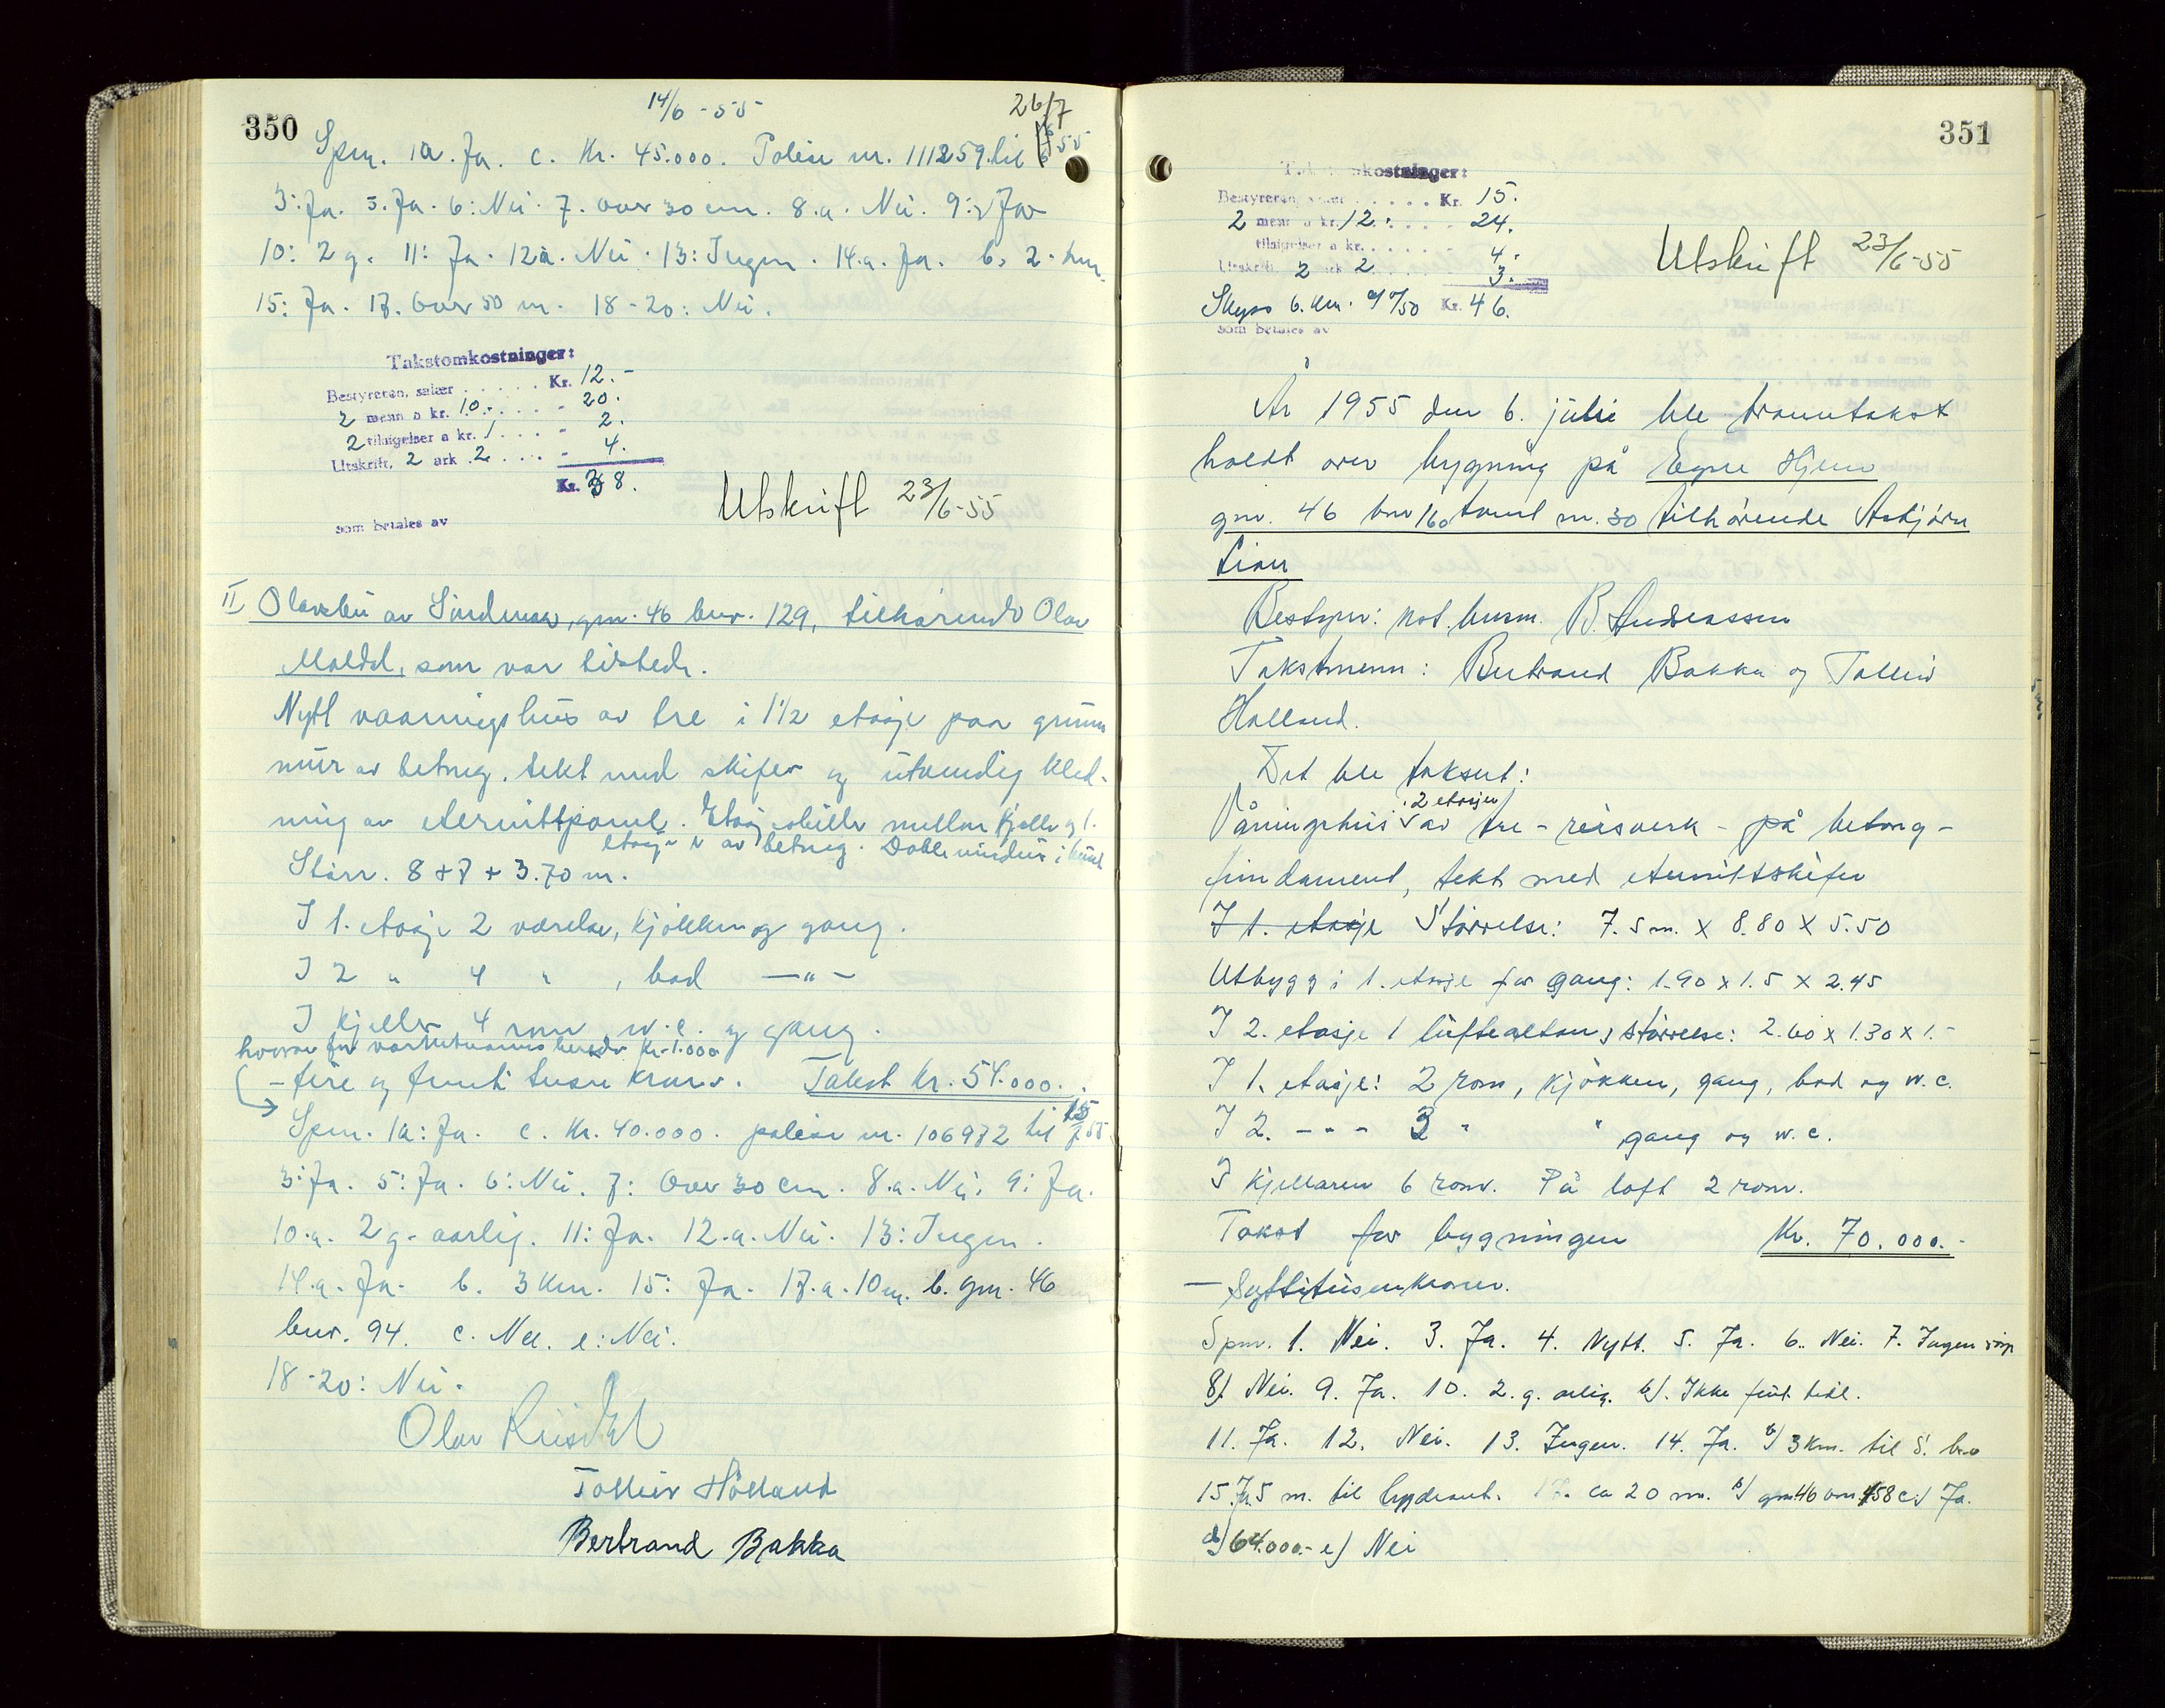 350
14/6-55
26/7
Spm. 1a. Ja. c. Kr. 45.000. Polise nr. 111259. til
3: Ja. 5. Ja. 6: Nei. 7. Over 30 cm. 8.a. Nei. 9: Ja
10: 2 g. 11: Ja. 12a. Nei. 13: Ingen. 14.a. Ja. b. 2. km.
15: Ja. 17. Over 50 m. 18-20: Nei.
Takstomkostninger:
Bestyreren, salær . . . . . Kr. 12.-
2 menn a kr. 10.- . . . . - 20.
2 tilsigelser a kr. 1 . . . . - 2.
Utskrift, 2 ark 2. . . . . - 4.
Kr. 38.
som betales av
Utskrift 23/6-55
II Olavsbu av Sindmoa, gnr. 46 bnr. 129, tilhørende Olav
Moldal, som var tilstede.
Nytt vaaningshus av tre i 1 1/2 etasje paa grunn
mur av betong, tekt med skifer og utvendig kled-
ning av eternittpanel. Etasjeskille mellom kjeller og 1.
etasje er av betong. Doble vinduer i
Størr. 8 + 7 + 3.70 m.
I 1. etasje 2 værelse, kjøkken og gang.
I 2 " 4 " , bad —"—
I kjeller 4 rom, w.c. og gang.
hvorav for varmtvannsbereder Kr. 1.000
- fire og femti tusen kroner. Takst Kr. 54.000.
Spm. 1a: Ja. c. Kr. 40.000. polise nr. 106972 til 15/7 55
3: Ja. 5: Ja. 6: Nei. 7: Over 30 cm. 8.a. Nei. 9: Ja.
10.a. 2 g. aarlig. 11: Ja. 12.a. Nei. 13: Ingen.
14.a. Ja. b. 3 km. 15: Ja. 17.a. 10 m. b. gnr. 46
bnr. 94. c. Nei. e: Nei.
18-20: Nei.
Olav
Tolleiv Hølland
Bertrand Bakka
351
Takstomkostninger:
Bestyreren, salær . . . . . Kr. 15.
2 menn a kr. 12. . . . - 24.
tilsigelser a kr. . . . . - 4.
Utskrift, 2 ark 2 . . . . 3.
Skyss 6. km. a 0/50 Kr. 46.
som betales av
Utskrift 23/6-55
År 1955 den 6. juli ble branntakst
holdt over bygning på Egne Hjem
gnr. 46 bnr 160 tomt nr. 30 tilhørende Asbjørn
Lian
Bestyrer: kst. lensm. B. Andreassen
Takstmenn: Bertrand Bakka og Tolleiv
Hølland.
Det ble taksert:
i 2 etasjer
Våningshus av tre - reisverk - på betong-
fundament, tekt med eternittskifer
I 1. etasje Størrelse: 7.5 m. x 8.80 x 5.50
Utbygg i 1. etasje for gang: 1.90 x 1.5 x 2.45
I 2. etasje 1 luftealtan, størrelse: 2.60 x 1.30 x 1.-
I 1. etasje: 2 rom, kjøkken, gang, bad og w.c.
I 2. - " - 3 " " gang og w.c.
I kjelleren 6 rom. På loft 2 rom.
Takst for bygningen Kr. 70.000.-
— Syttitusenkroner.
Spm. 1. Nei. 3. Ja. 4. Nytt. 5. Ja. 6. Nei. 7. Ingen
8) Nei. 9. Ja. 10. 2. g. årlig. b). Ikke
11. Ja. 12. Nei. 13. Ingen. 14. Ja. b) 3 km. til S.
15. Ja. 5 m. til hydrant. 17. ca 20 m. b) gnr 46 bnr 158 c) Ja.
d) 64.000.- e) Nei